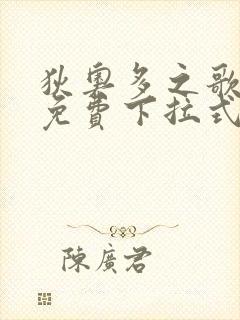 狄奧多之歌
免費下拉式
陳廣君